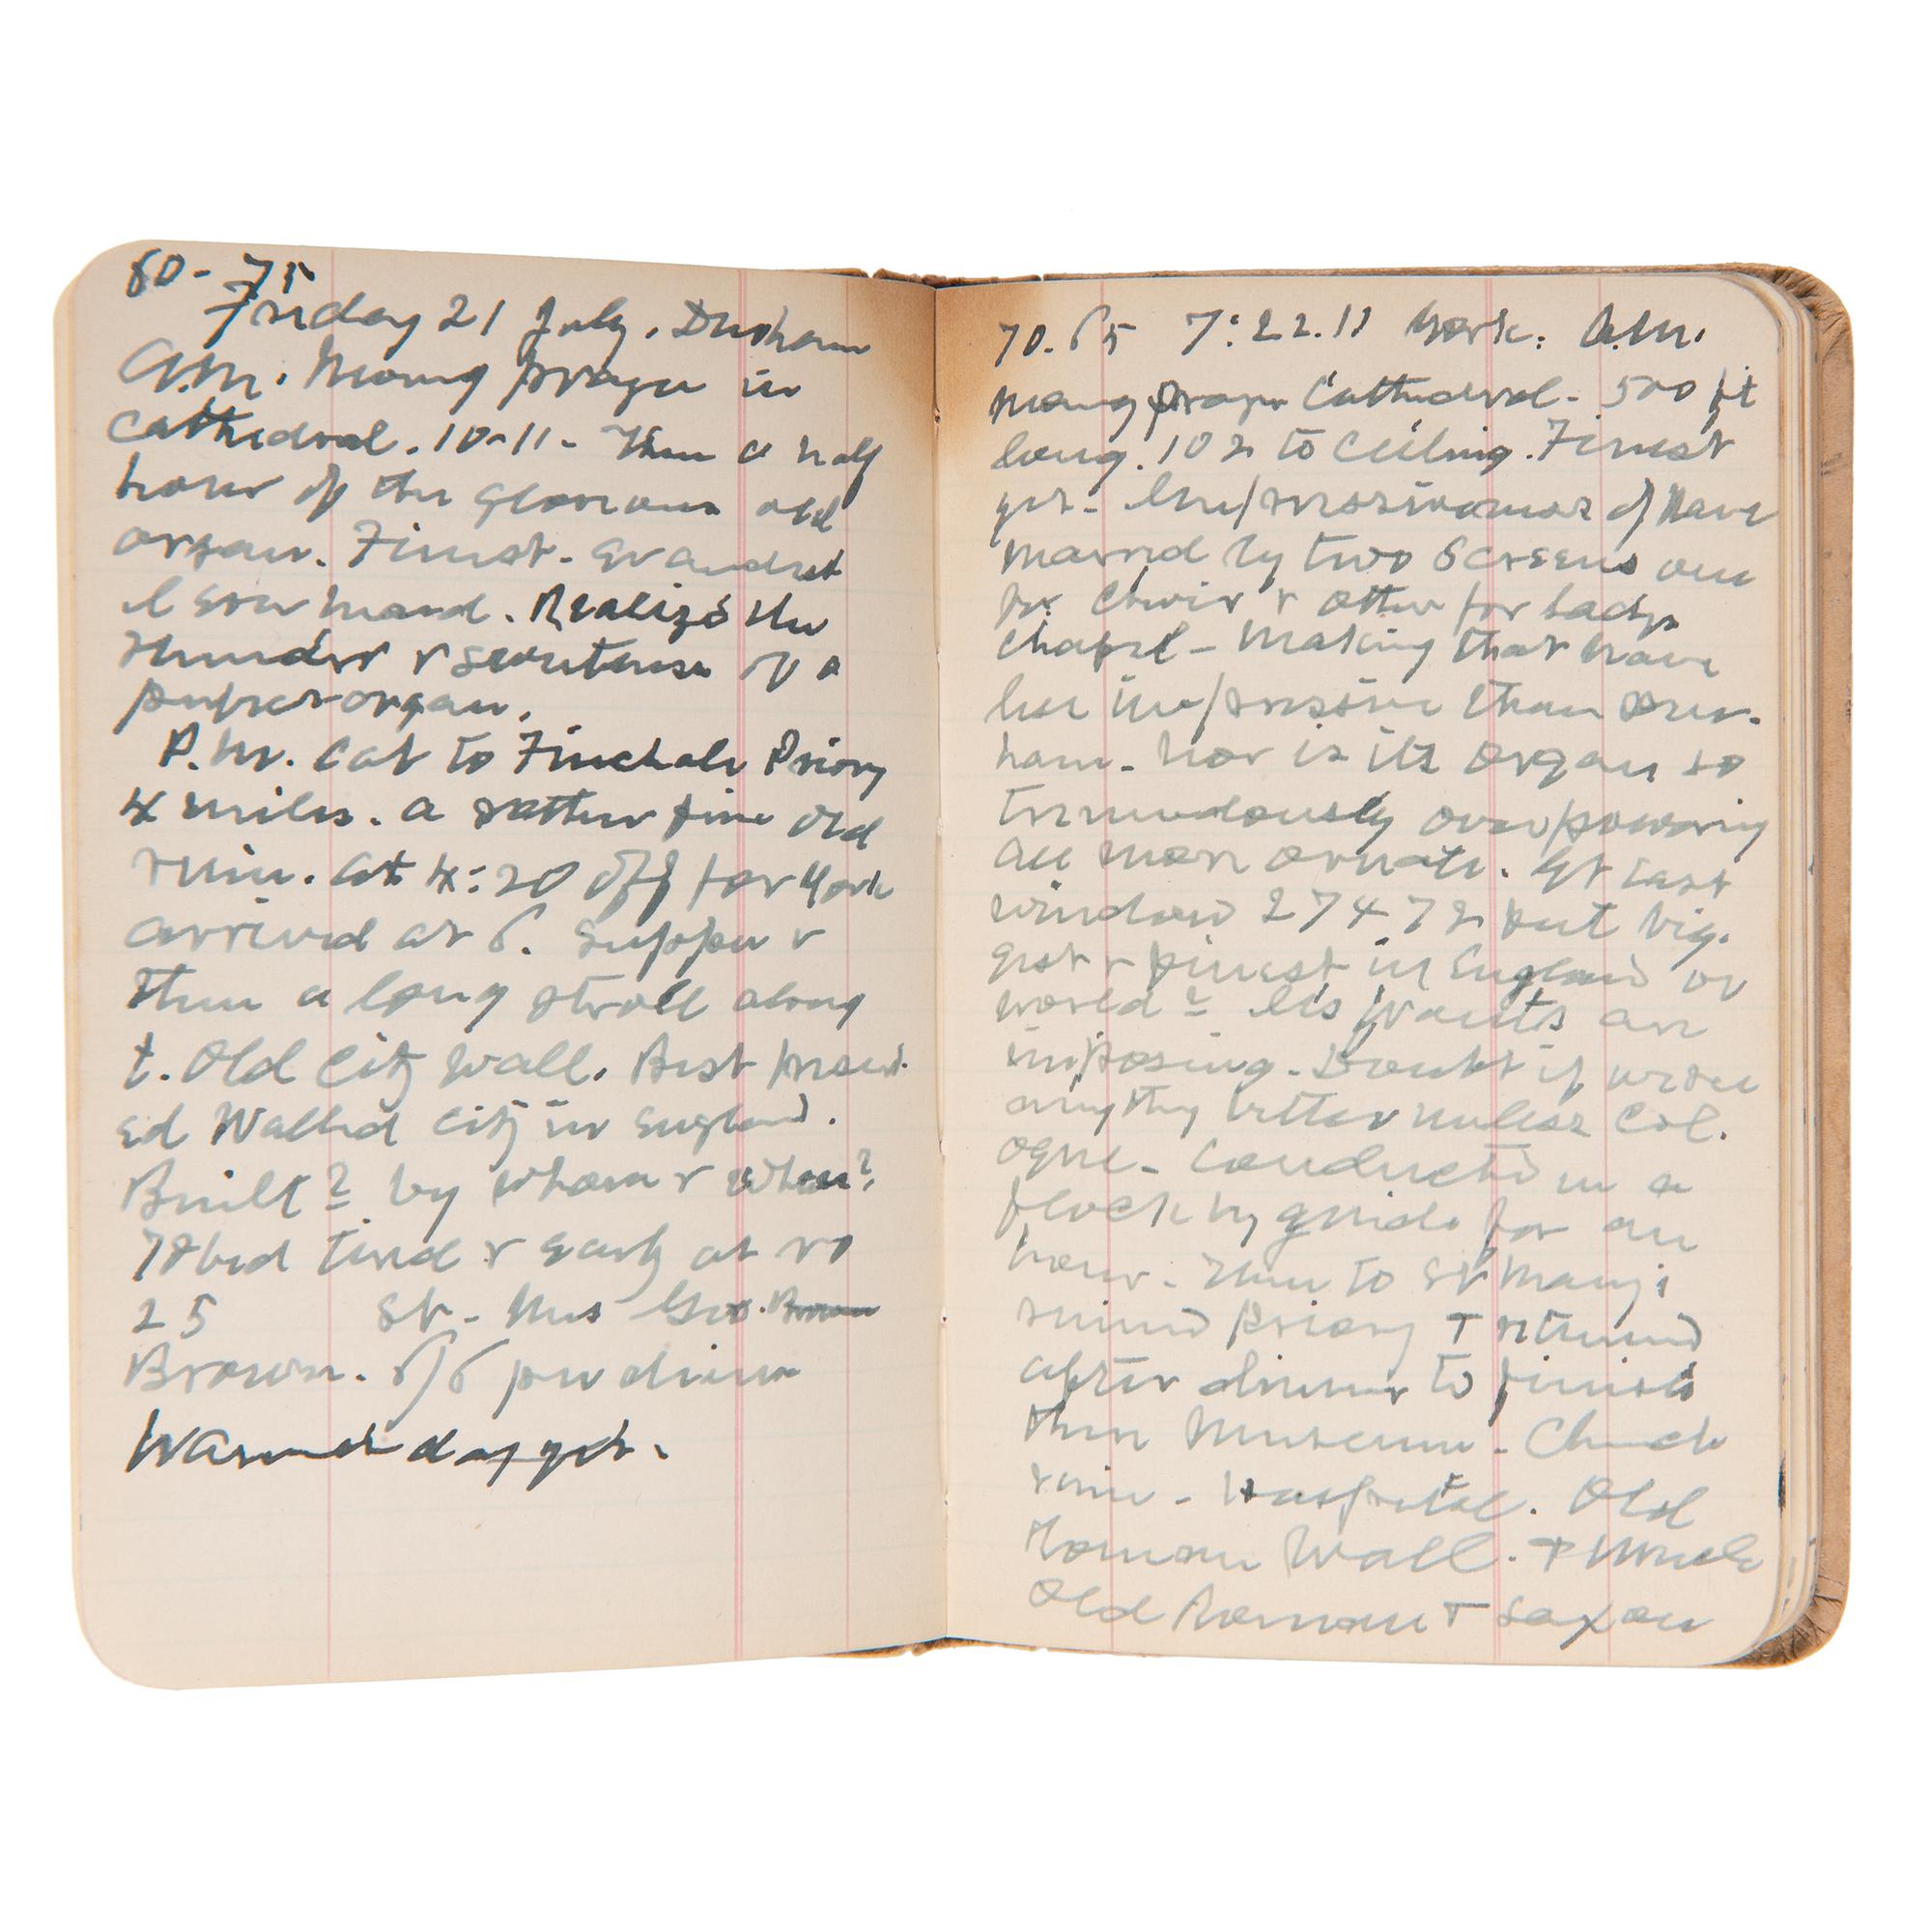 60-75
Friday 21 July. Durham
A.M. Morning prayer in
Cathedral. 10-11- Then a half
hour of the glorious old
organ. Finest - grandest
I ever heard. Realize the
thunder & sweetness of a
organ.
P.M. Cab to Finchale Priory
4 miles. A rather fine old
ruin. At 4:20 off for York
arrived at 6. Supper &
then a long stroll along
t. Old City Wall. Best preserv-
ed Walled City in England.
Built? by whom & when?
To bed tired & early at
25 St - Mrs Geo.
Brown. 6/6 per diem
Warmest day yet.
70.65 7:22.11 York: A.M.
morng prayer Cathedral - 500 ft
long. 102 to Ceiling. Finest
yet - Impressiveness of Nave
marred by two Screens one
for Choir & other for Lady
Chapel - making that have
less impressive than Dur-
ham - Nor is its Organ so
tremendously overpowering
All more ornate. Gt East
window 27 + 72 feet big-
gest & finest in England or
world? Its vaults are
imposing - Doubt if we see
anything better unless Col-
ogne - Conducted in a
flock by guide for an
hour - Then to St Mary's
ruined Priory & returned
after dinner to finish
then Museum - Church
ruin - Hospital. Old
Roman Wall. & Much
Old Roman & Saxon